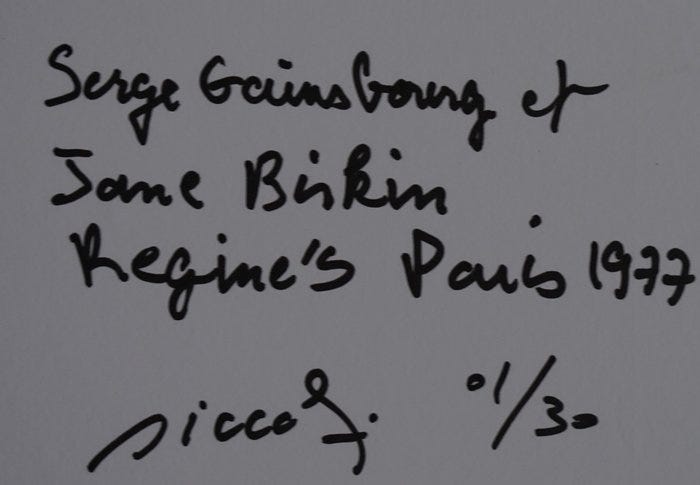 Serge Gainsbourg et
Jane Birkin
Regine's Paris 1977
siccoli 01/30